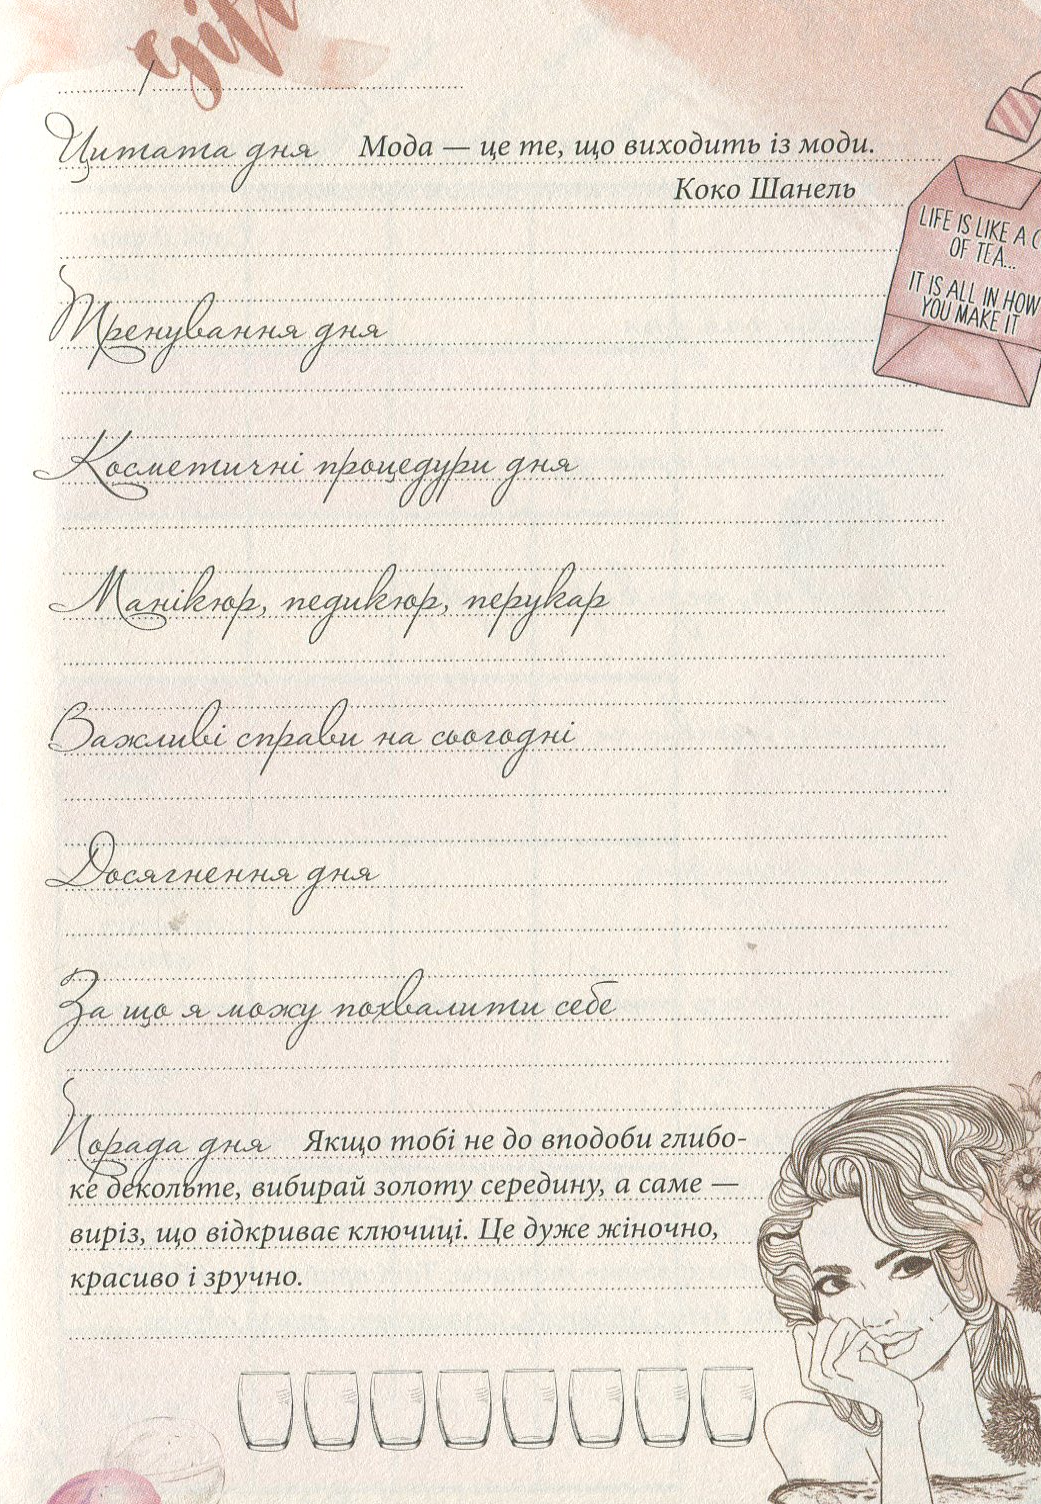 Цитата дня Мода — це те, що виходить із моди.
Коко Шанель
LIFE IS LIKE A
OF TEA...
IT IS ALL IN HOW
YOU MAKE IT
Тренування дня
Косметичні процедури дня
Манікюр, педикюр, перукар
Важливі справи на сьогодні
Досягнення дня
За що я можу похвалити себе
Порада дня Якщо тобі не до вподоби глибо-
ке декольте, вибирай золоту середину, а саме —
виріз, що відкриває ключиці. Це дуже жіночно,
красиво і зручно.